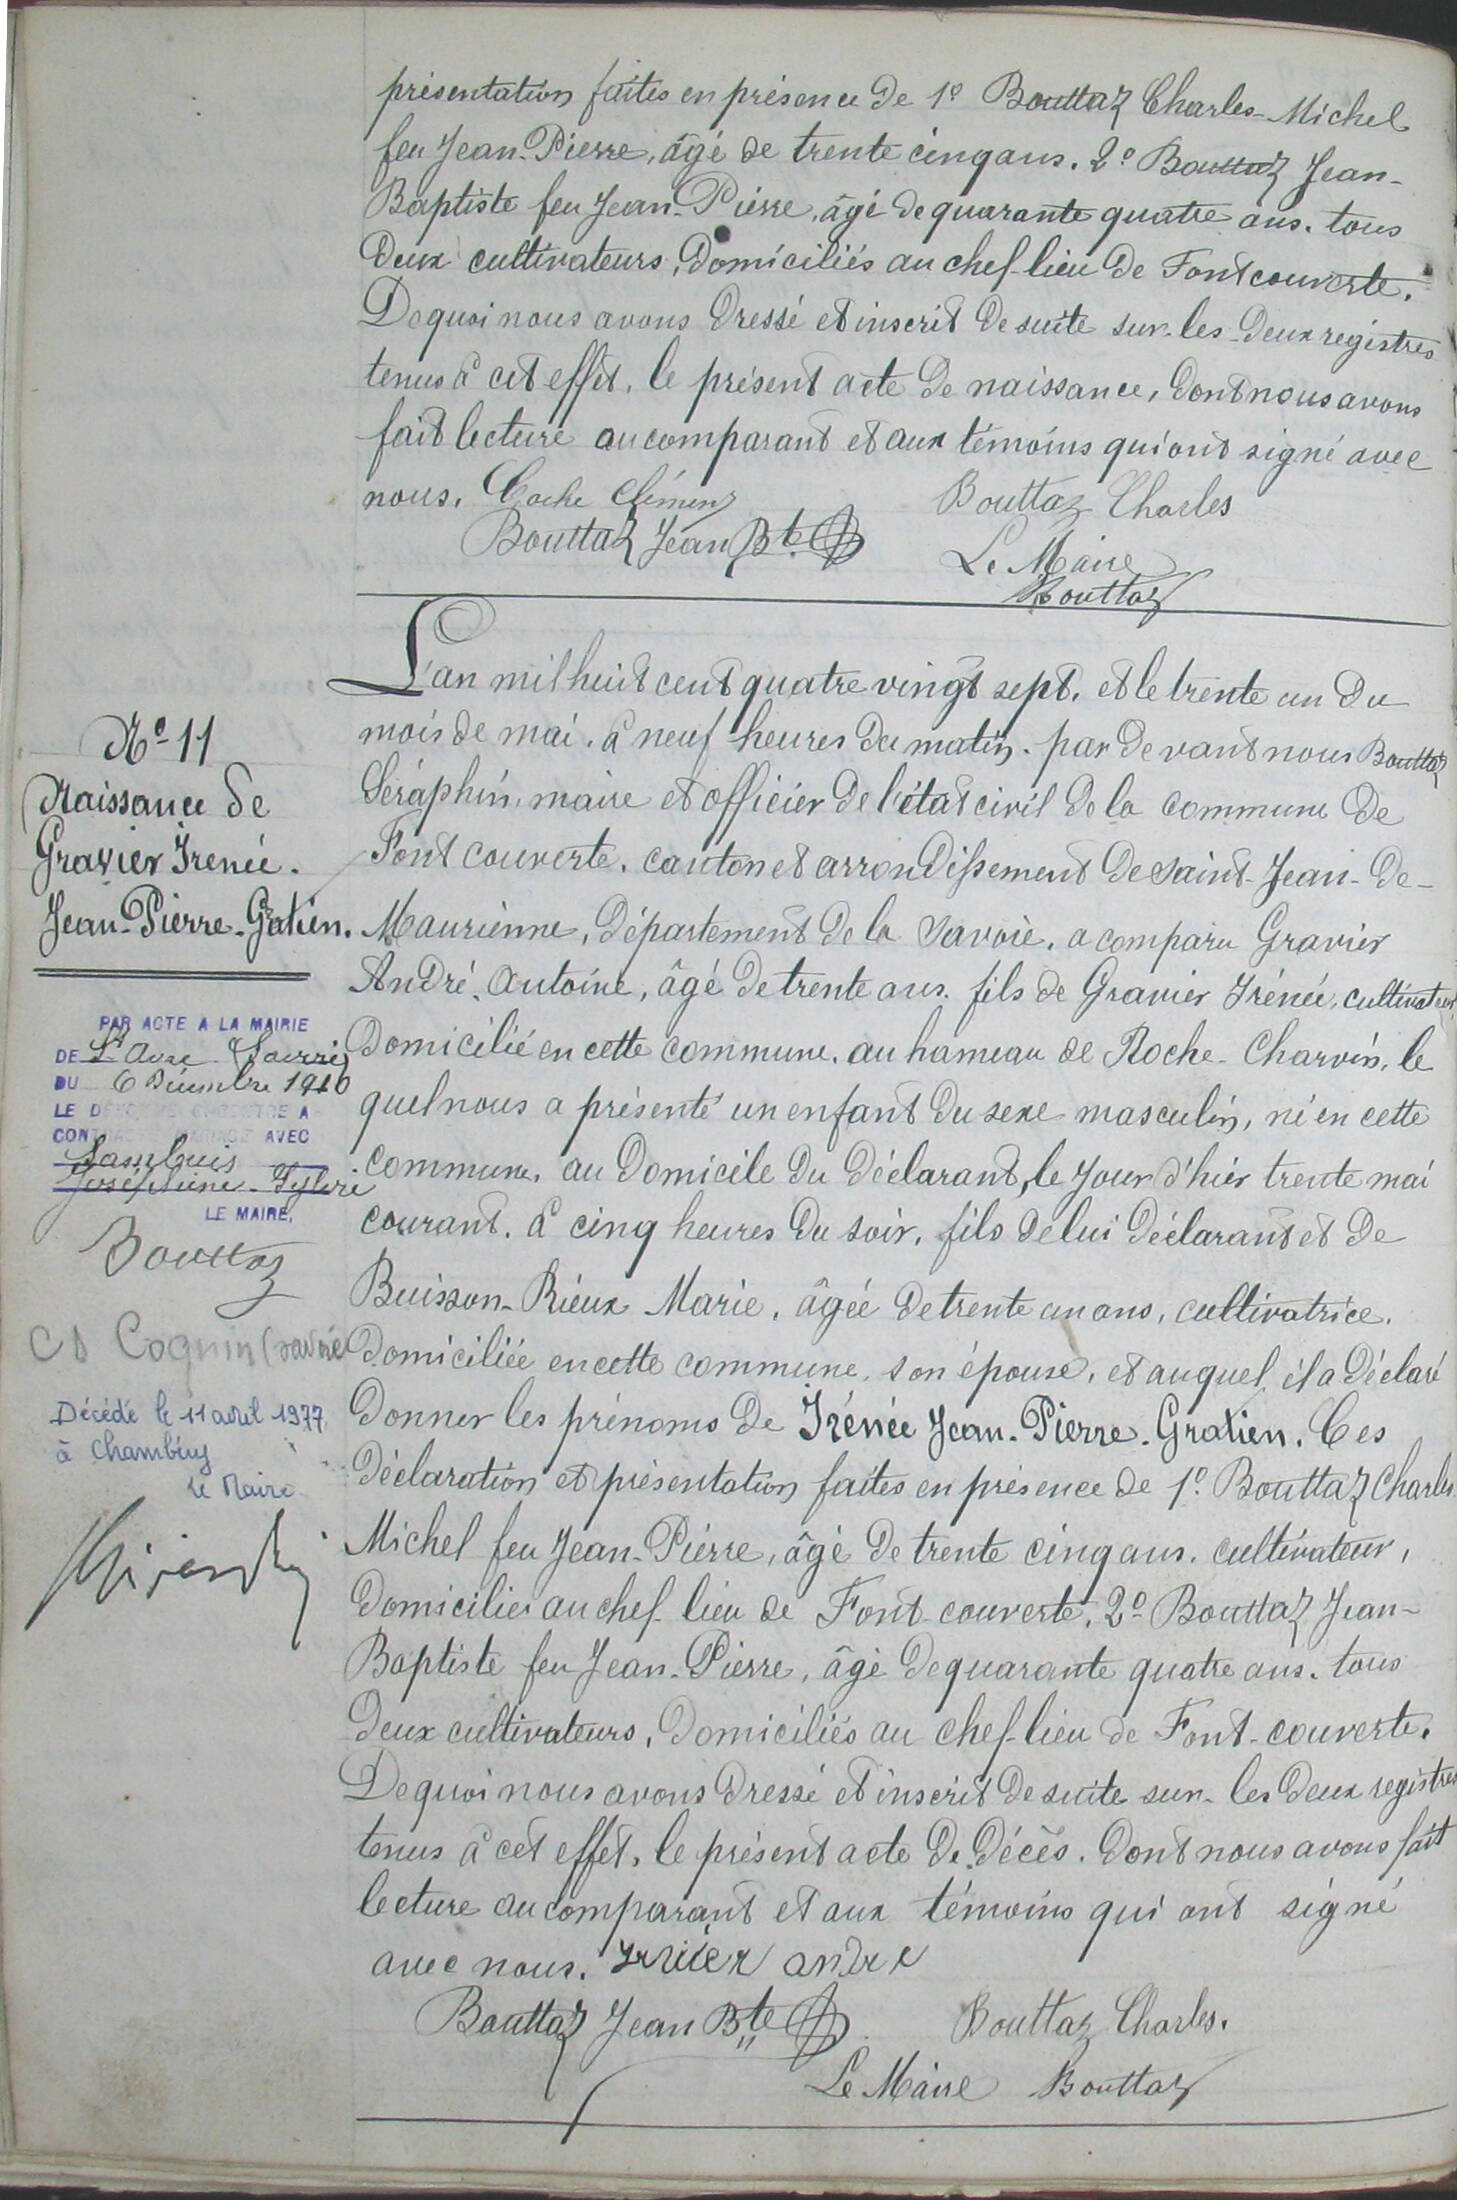 présentation faites en présence de 1º Bouttaz Charles-Michel
feu Jean-Pierre, âgé de trente cinq ans. 2º Bouttaz Jean-
Baptiste feu Jean-Pierre, âgé de quarante quatre ans. tous
deux cultivateurs, domiciliés au chef-lieu de Fontcouverte.
De quoi nous avons dressé et inscrit de suite sur les deux registres
tenus à cet effet, le présent acte de naissance, dont nous avons
fait lecture au comparant et aux témoins qui ont signé avec
nous. Coche Clément
Bouttaz Charles
Bouttaz Jean Bte
Le Maire
Bouttaz
Nº 11
Naissance de
Gravier Irenée.
Jean-Pierre-Gratien.
PAR ACTE A LA MAIRIE
DE St Avre (Savoie)
DU 6 Décembre 1910
LE DÉNOMMÉ CI-CONTRE A
CONTRACTÉ MARIAGE AVEC
Joséphine
LE MAIRE,
Bouttaz
Cognin (Savoie
Décédé le 11 avril 1977
à Chambéry
Le Maire
L'an mil huit cent quatre vingt sept. et le trente un du
mois de mai. à neuf heures du matin. par devant nous Bouttaz
Séraphin, maire et officier de l'état civil de la commune de
Font couverte. canton et arrondissement de Saint-Jean-de-
Maurienne, département de la Savoie. a comparu Gravier
André Antoine, âgé de trente ans. fils de Gravier Irénée, cultivateur
domicilié en cette commune. au hameau de Roche-Charvin. le
quel nous a présenté un enfant du sexe masculin, né en cette
commune, au domicile du déclarant, le jour d'hier trente mai
courant. à cinq heures du soir. fils de lui déclarant et de
Buisson-Rieux Marie. âgée de trente un ans, cultivatrice.
domiciliée en cette commune, son épouse, et auquel il a déclaré
donner les prénoms de Irénée Jean-Pierre-Gratien. Ces
déclaration et présentation faites en présence de 1º. Bouttaz Charles
Michel feu Jean-Pierre, âgé de trente cinq ans. cultivateur,
domicilié au chef-lieu de Font-couverte. 2º Bouttaz Jean-
Baptiste feu Jean-Pierre, âgé de quarante quatre ans. tous
deux cultivateurs, domiciliés au chef-lieu de Font-couverte.
De quoi nous avons dressé et inscrit de suite sur les deux registres
tenus à cet effet, le présent acte de décès. dont nous avons fait
lecture au comparant et aux témoins qui ont signé
avec nous. andre
Bouttaz Jean Bte
Bouttaz Charles.
Le Maire Bouttaz